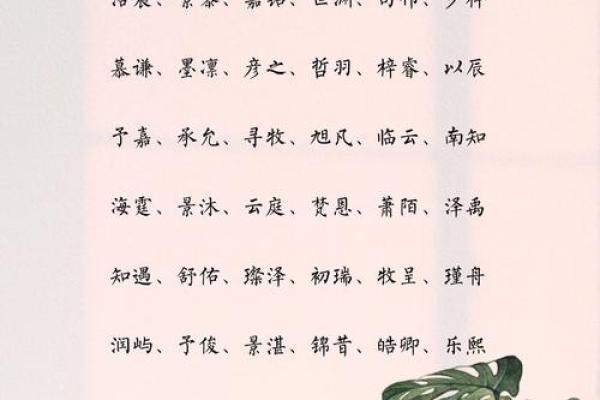 慕谦、墨凛、彦之、哲羽、梓睿、以辰
予嘉、承允、寻牧、旭凡、临云、南知
海霆、景沐、云庭、梵恩、萧陌、泽禹
知遇、舒佑、璨泽、初瑞、牧呈、瑾舟
润屿、予俊、景湛、锦昔、皓卿、乐熙